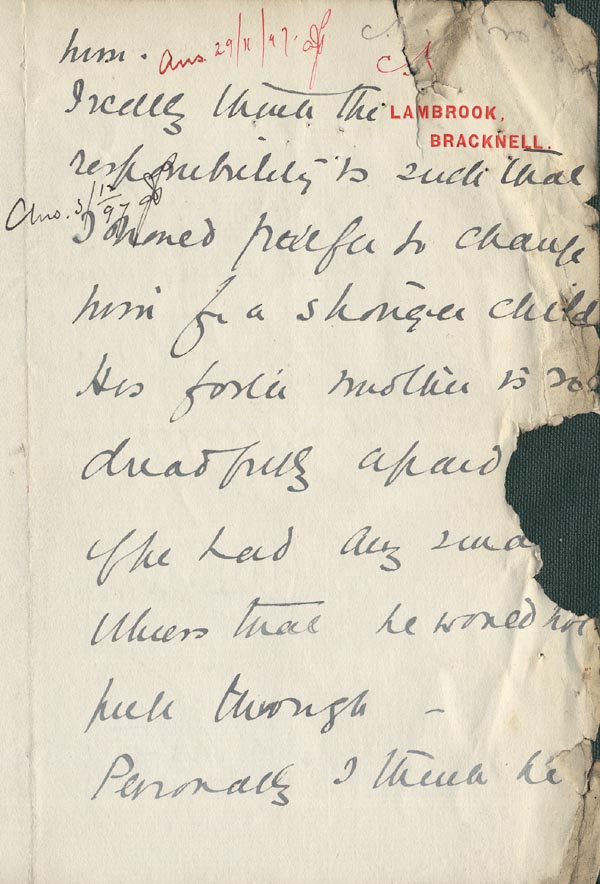 him. Ans. 29/11/97.
I really think the
LAMBROOK,
BRACKNELL.
responsibility is such that
Ans. 3/12/97
I should prefer to change
him for a stronger child
His foster mother is so
dreadfully afraid
if he had any sma
illness that he would not
pull through –
Personally I think he